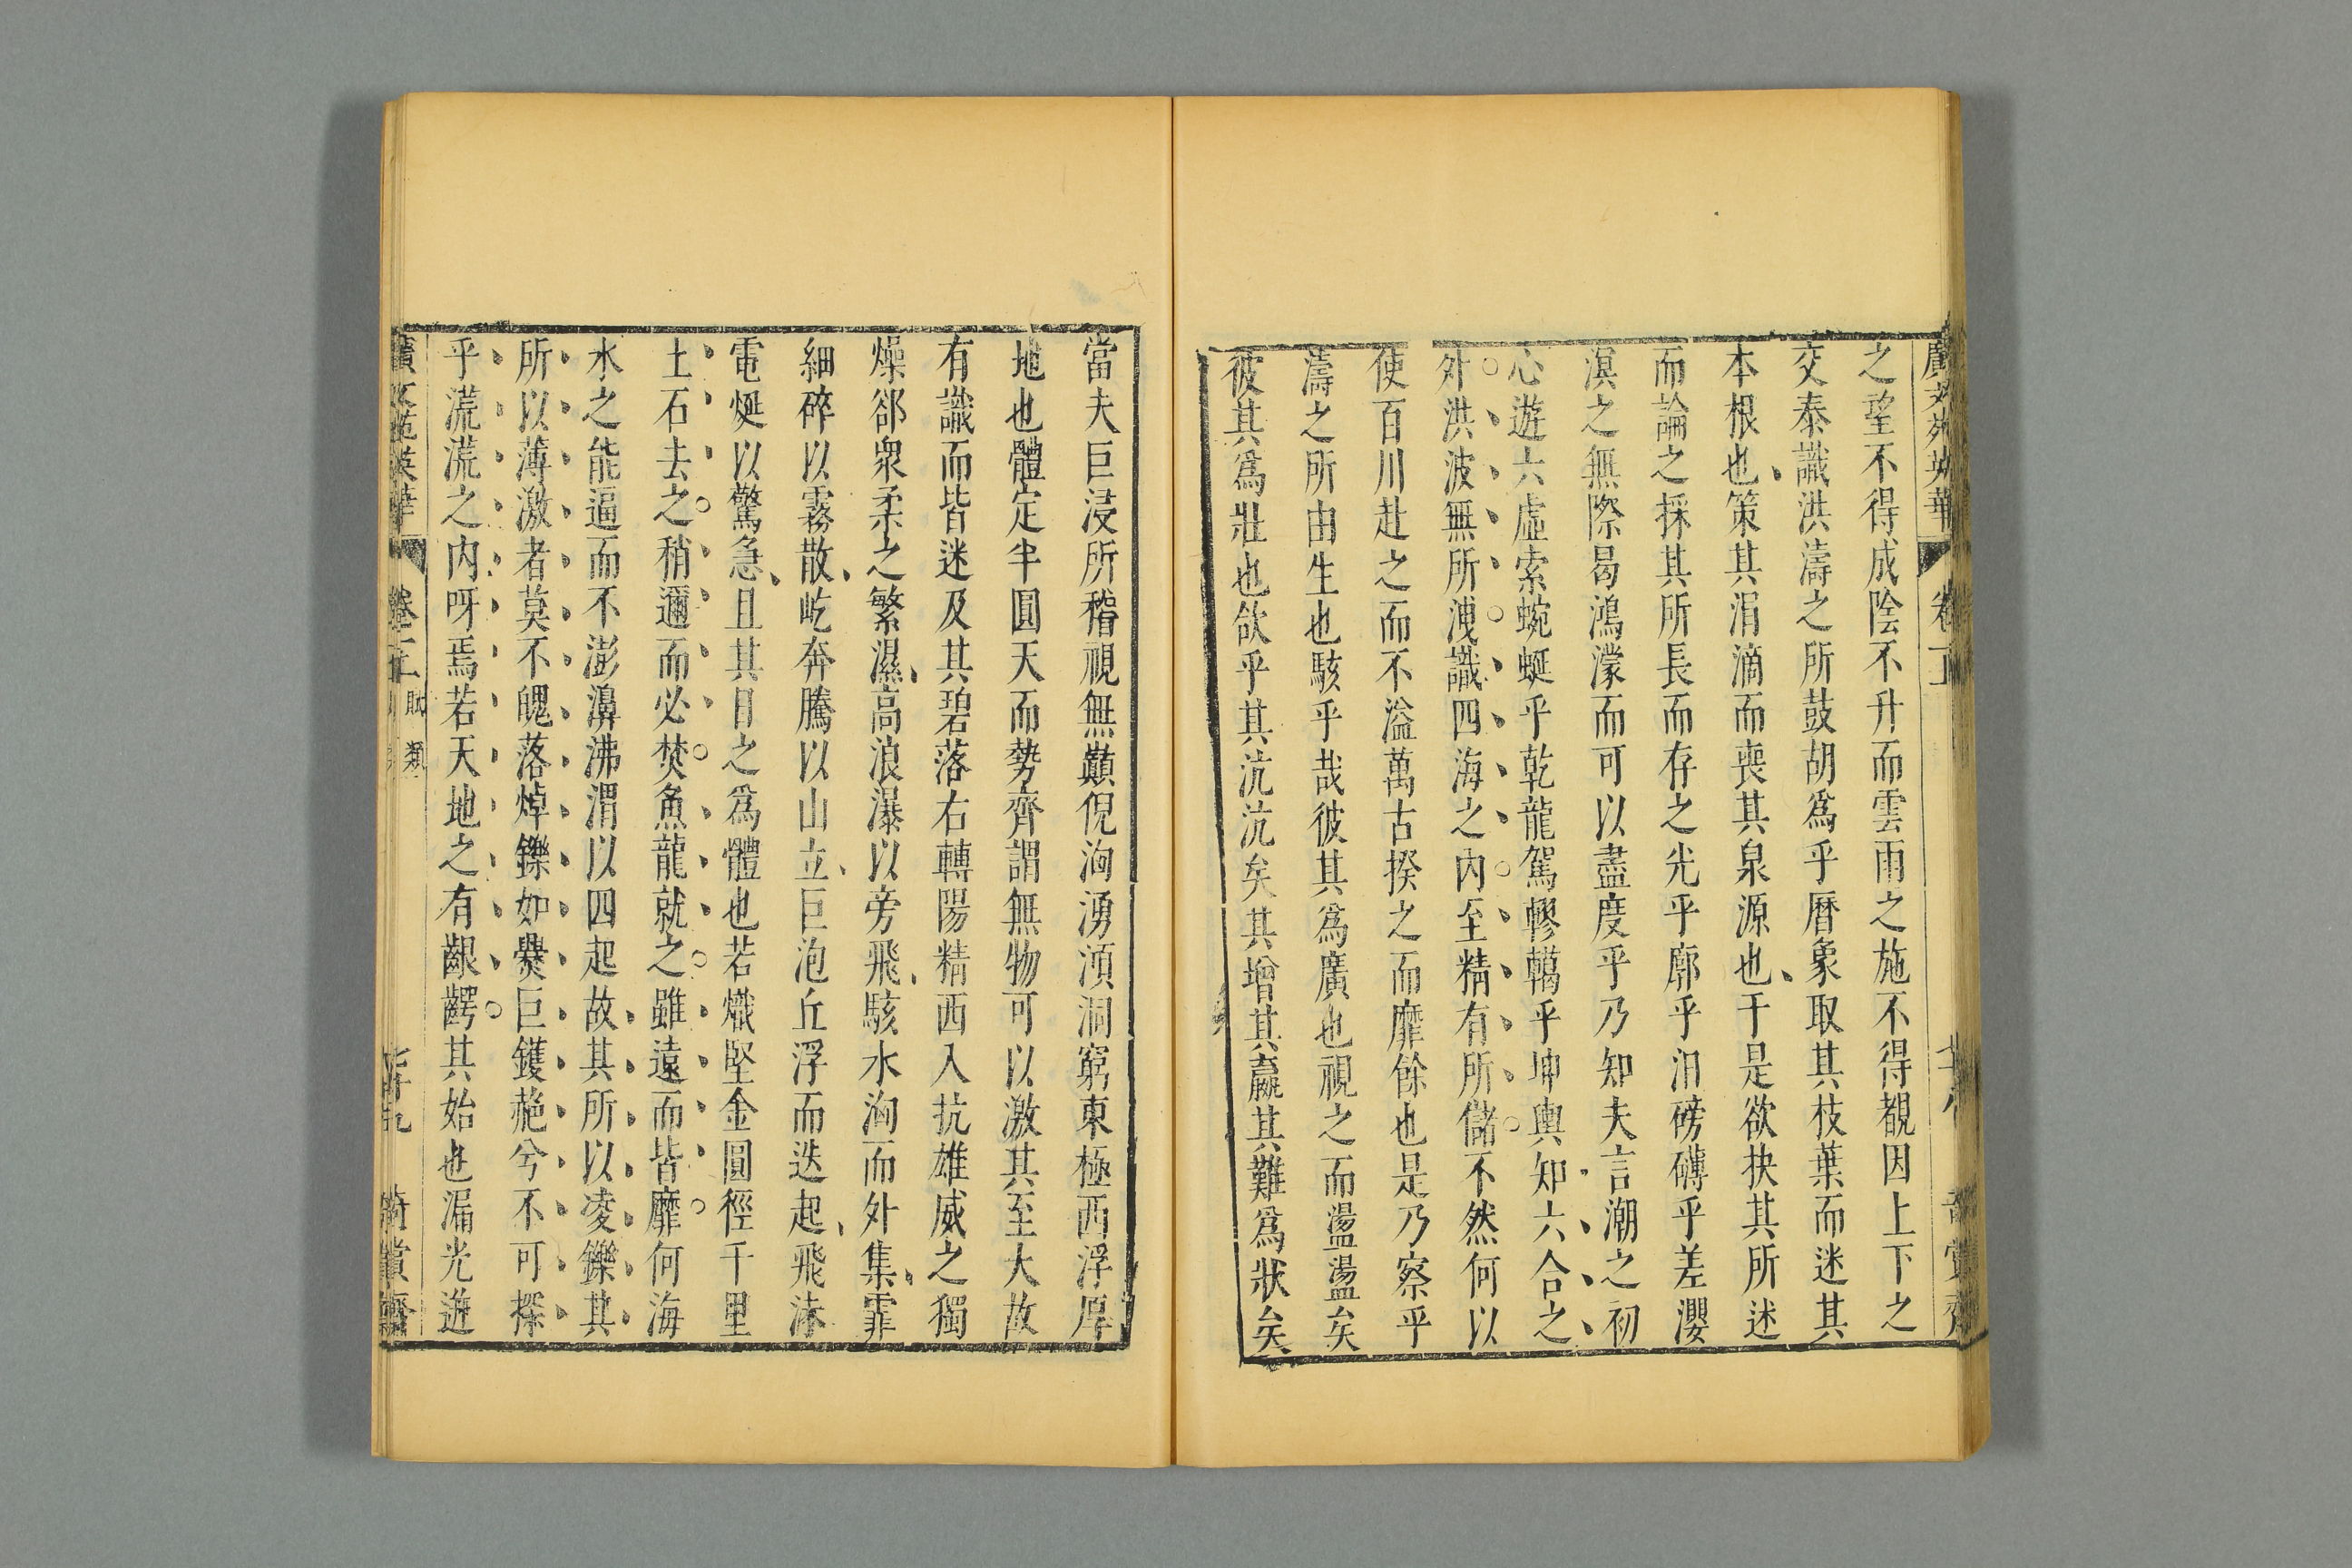 廣文苑英華 卷二 賞齋
之望不得成陰不升而雲雨之施不得覩因上下之
交泰識洪濤之所鼓胡爲乎曆象取其枝葉而迷其
本根也策其涓滴而喪其泉源也于是欲抉其所迷
而論之採其所長而存之光乎廓乎汨磅礴乎差瓔
溟之無際曷鴻濛而可以盡度乎乃知夫言潮之初
心遊六虛索蜿蜒乎乾龍駕轇轕乎坤輿知六合之
外洪波無所洩識四海之內至精有所儲不然何以
使百川赴之而不溢萬古揆之而靡餘也是乃察乎
濤之所由生也駭乎哉彼其爲廣也視之而盪盪矣
彼其爲壯也欲乎其沆沆矣其增其贏其難爲狀矣
當夫巨浸所稽視無巔倪洶湧澒洞窮東極西浮厚
地也體定半圓天而勢齊謂無物可以激其至大故
有識而皆迷及其碧落右轉陽精西入抗雄威之獨
燥郤衆柔之繁濕高浪瀑以旁飛駭水洶而外集霏
細碎以霧散屹奔騰以山立巨泡丘浮而迭起飛沫
電烻以驚急且其日之爲體也若熾堅金圓徑千里
土石去之稍邇而必焚魚龍就之雖遠而皆靡何海
水之能逼而不澎濞沸渭以四起故其所以凌鑠其
所以薄激者莫不魄落焯鑠如爨巨鑊赩兮不可探
乎㳹㳹之内呀焉若天地之有齦齶其始也漏光迸
廣文苑英華 卷二 賦 類 賞齋